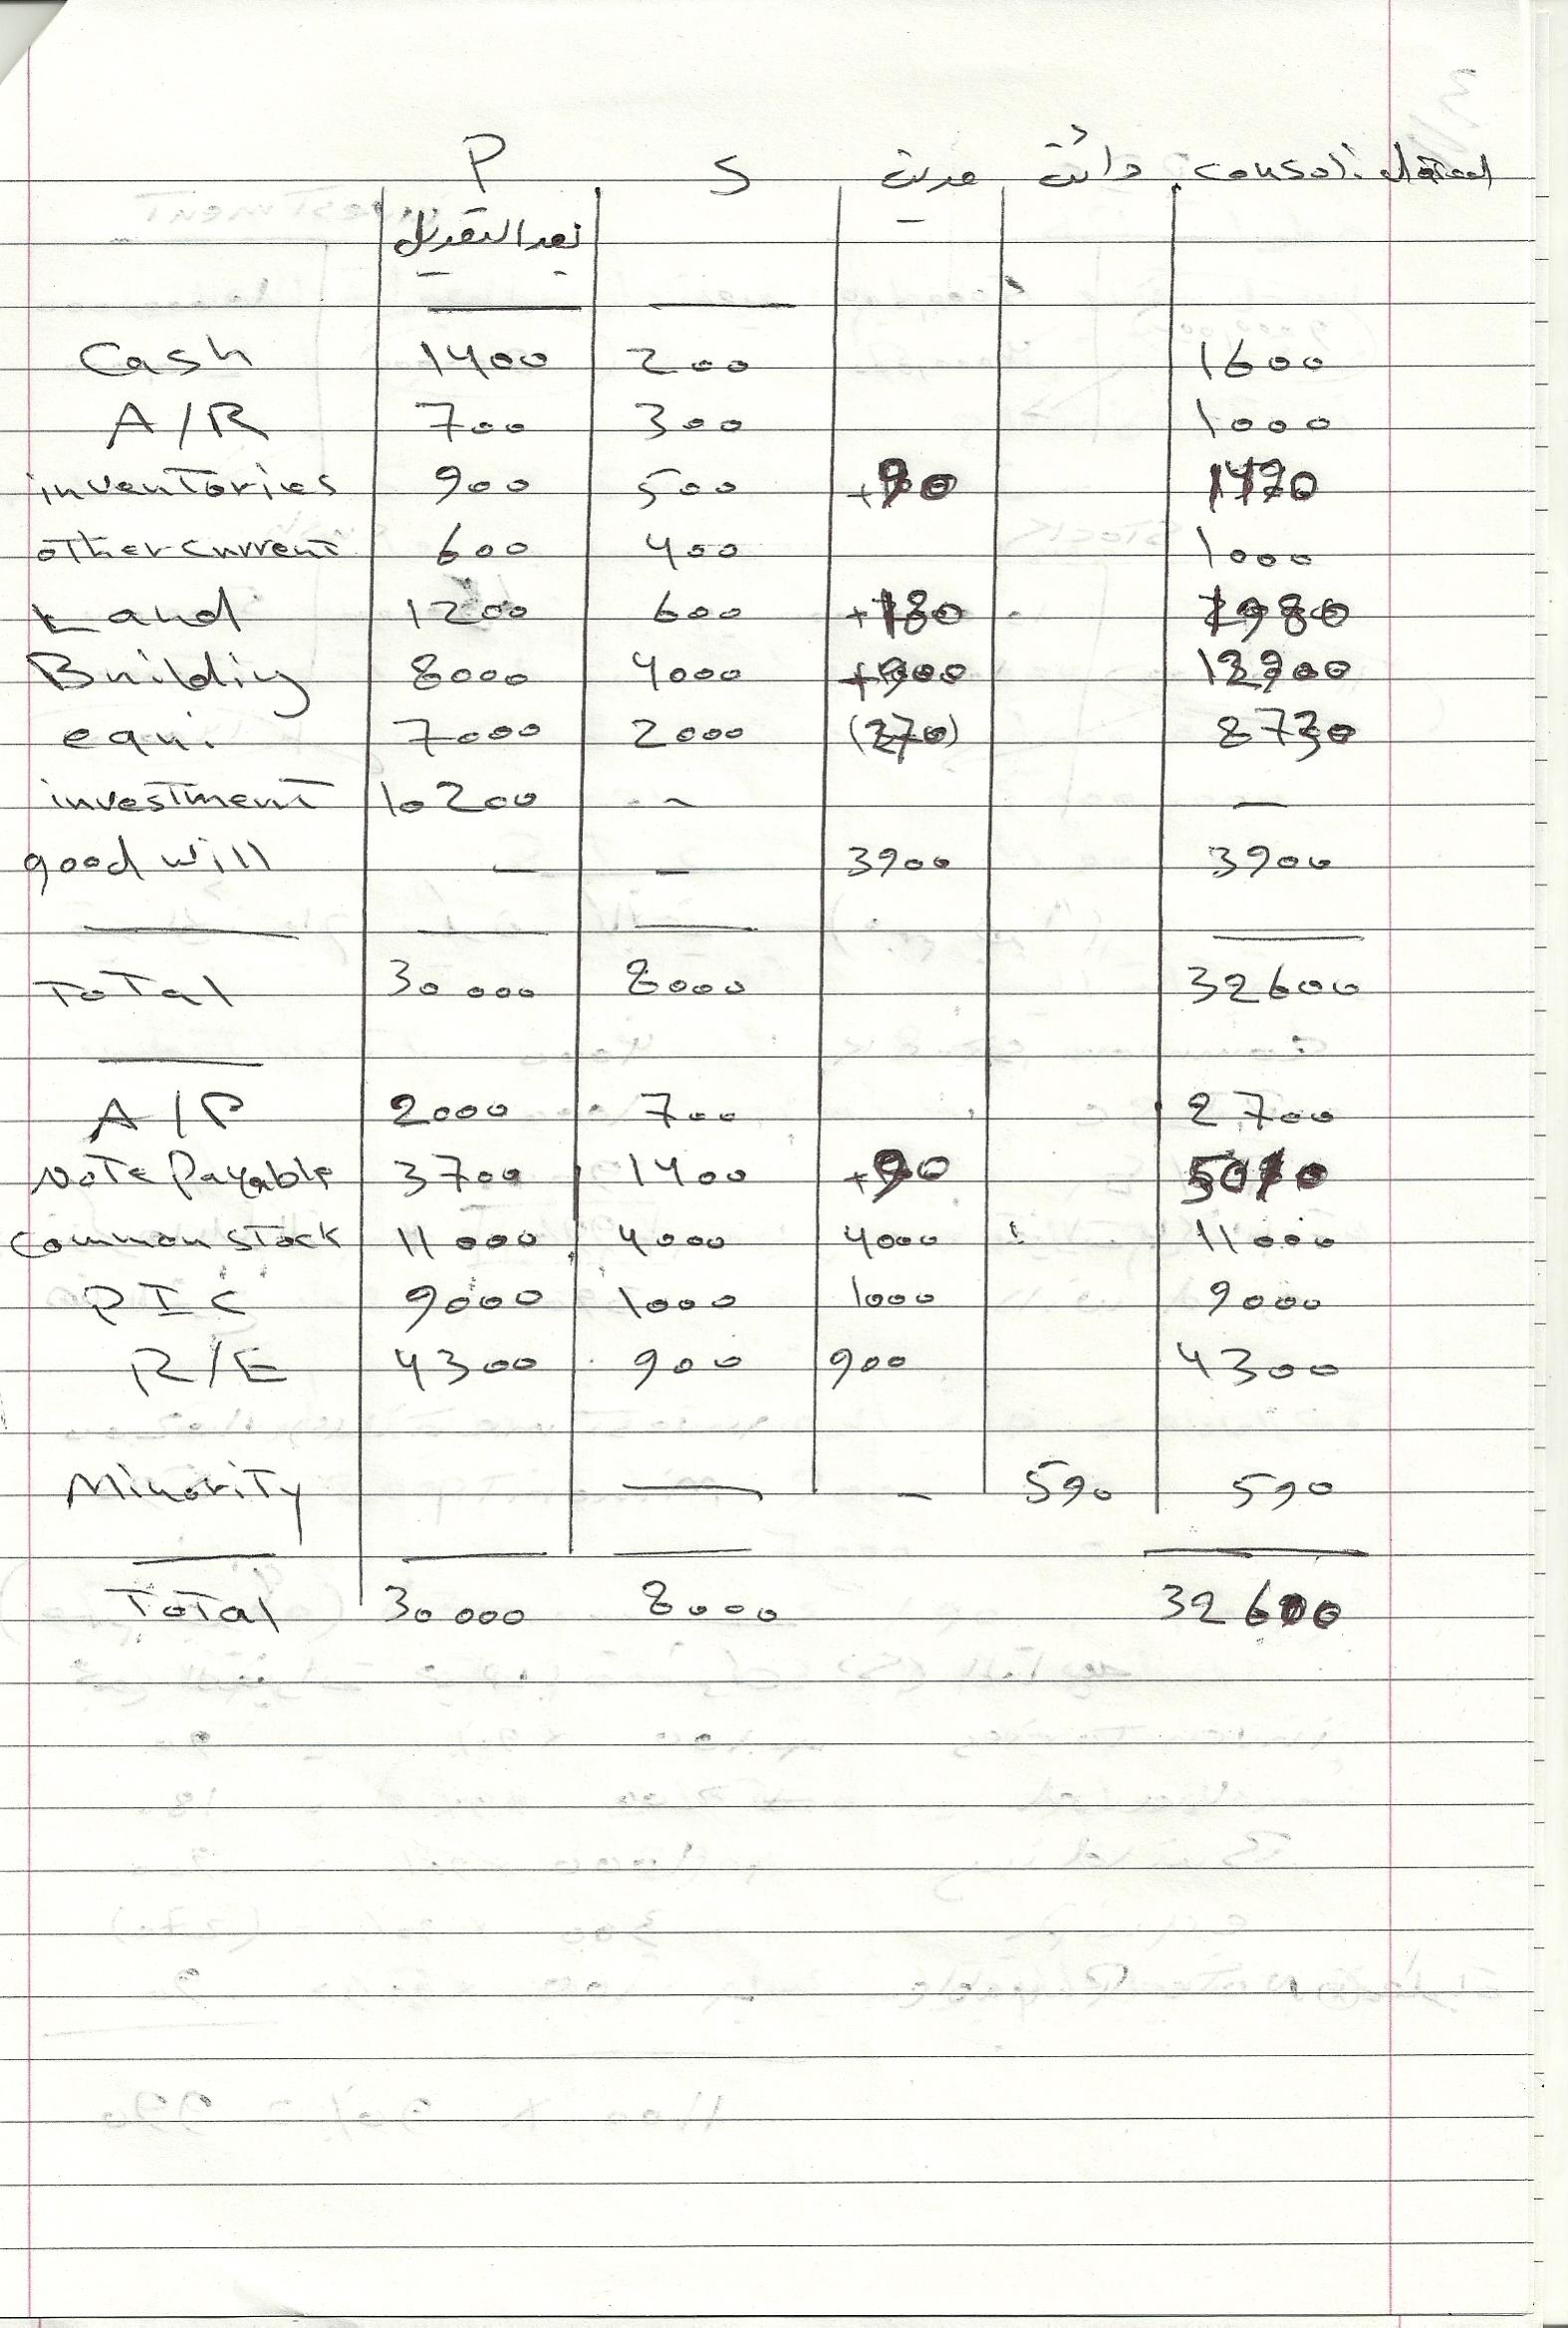 P S مدين دائن consolidated
بعد التعديل
Cash 1400 200 1600
A/R 700 300 1000
inventories 900 500 +90
other current 600 400 1000
Land 1200 600 +180 1980
Building 8000 4000 +900 12900
equi. 7000 2000 (270) 8730
investment 10200 - - —
good will — — 3900 3900
Total 30000 8000 32600
A/P 2000 700 2700
Note Payable 3700 1400 +90
Common stock 11000 4000 4000 11000
PIC 9000 1000 1000 9000
R/E 4300 900 900 4300
Minority — - 590 590
Total 30000 8000 32600